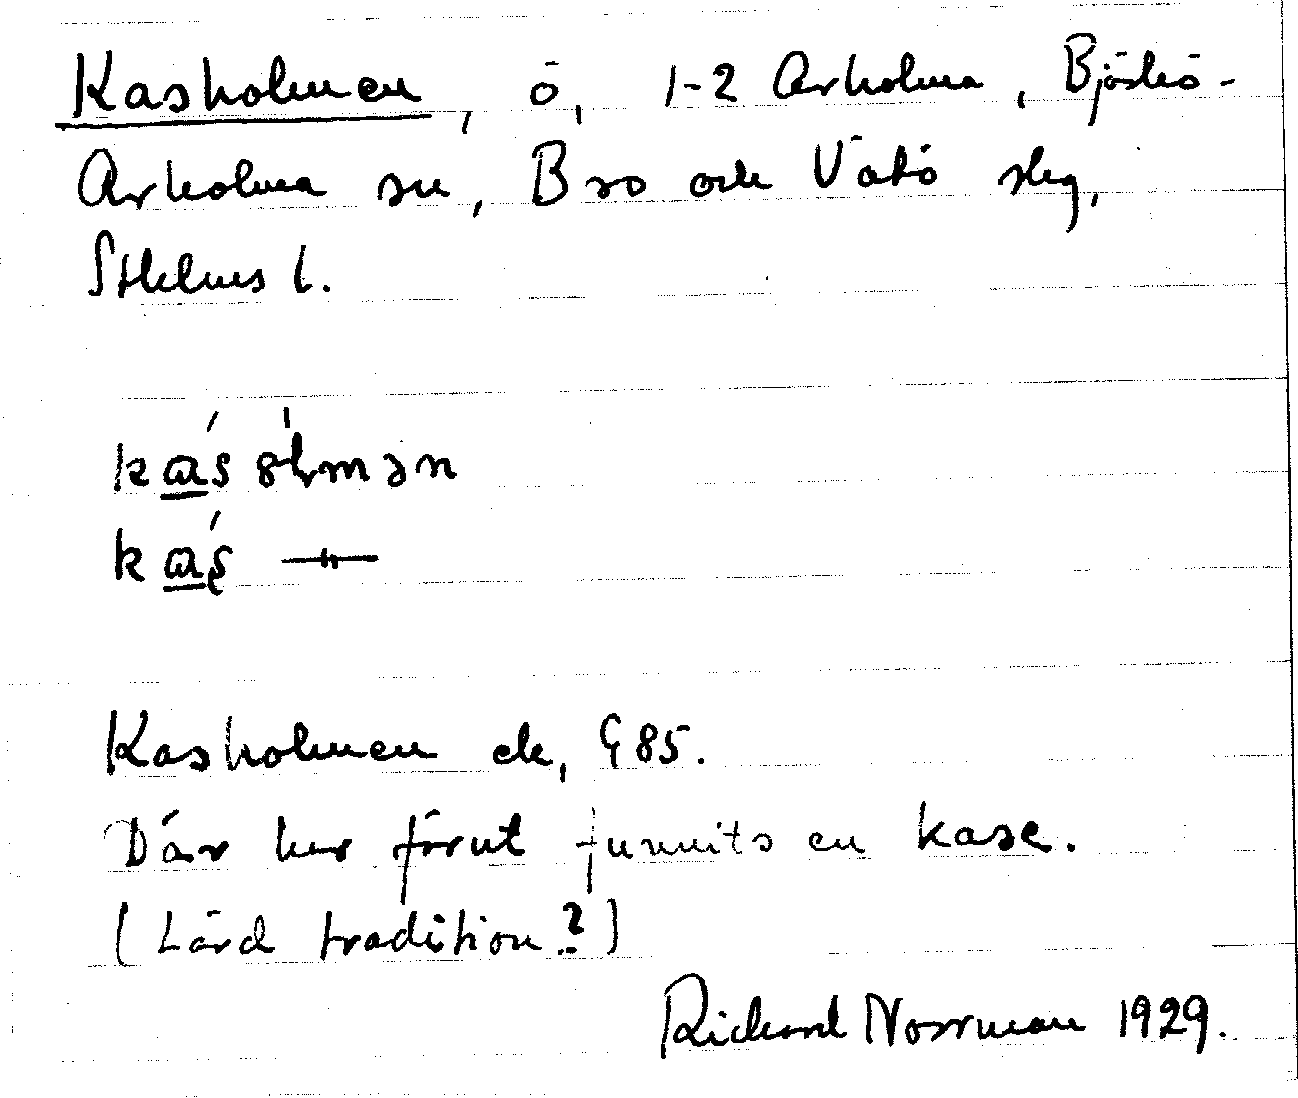 Kasholmen, ö, 1-2 Arholma, Björkö-
Arholma sn, Bro och Vätö skg,
Sthlms l.
kɑ́s ölmən
kɑ́s —"—
Kasholmen ek, G85.
Där har förut funnits en kase.
(Lärd tradition?)
Richard Norrman 1929.